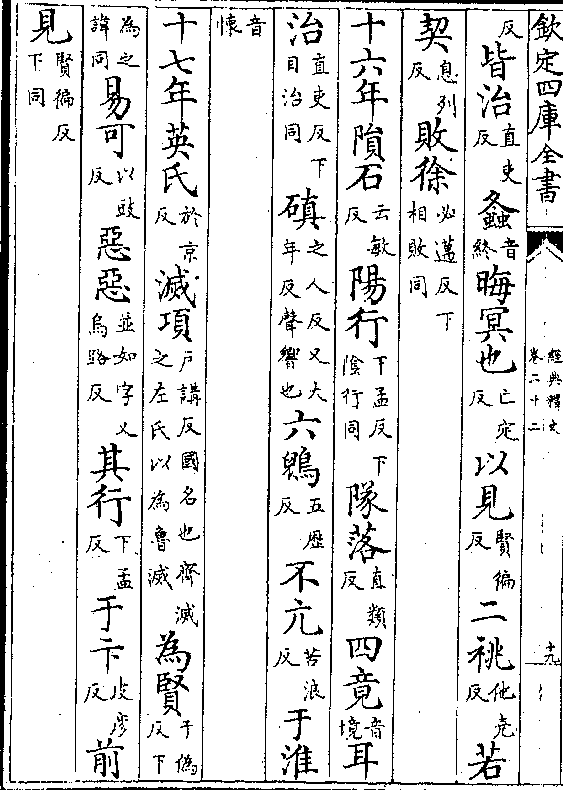 欽定四庫全書
經典釋文
卷二十二
十九
反皆治直吏反螽音終晦冥也亡定反以見賢徧反二祧他尭反若
契息列反敗徐必邁反下相敗同
十六年隕石云敏反陽行下孟反下陰行同隊落直類反四竟音境耳
治直吏反下目治同磌之人反又大年反聲響也六鶂五歴反不亢苦浪反于淮
音懐
十七年英氏於京反滅項戸講反國名也齊滅之左氏以為魯滅為賢于偽反下
為之諱同易可以豉反惡惡並如字又烏路反其行下孟反于卞皮彦反前
見賢徧反下同